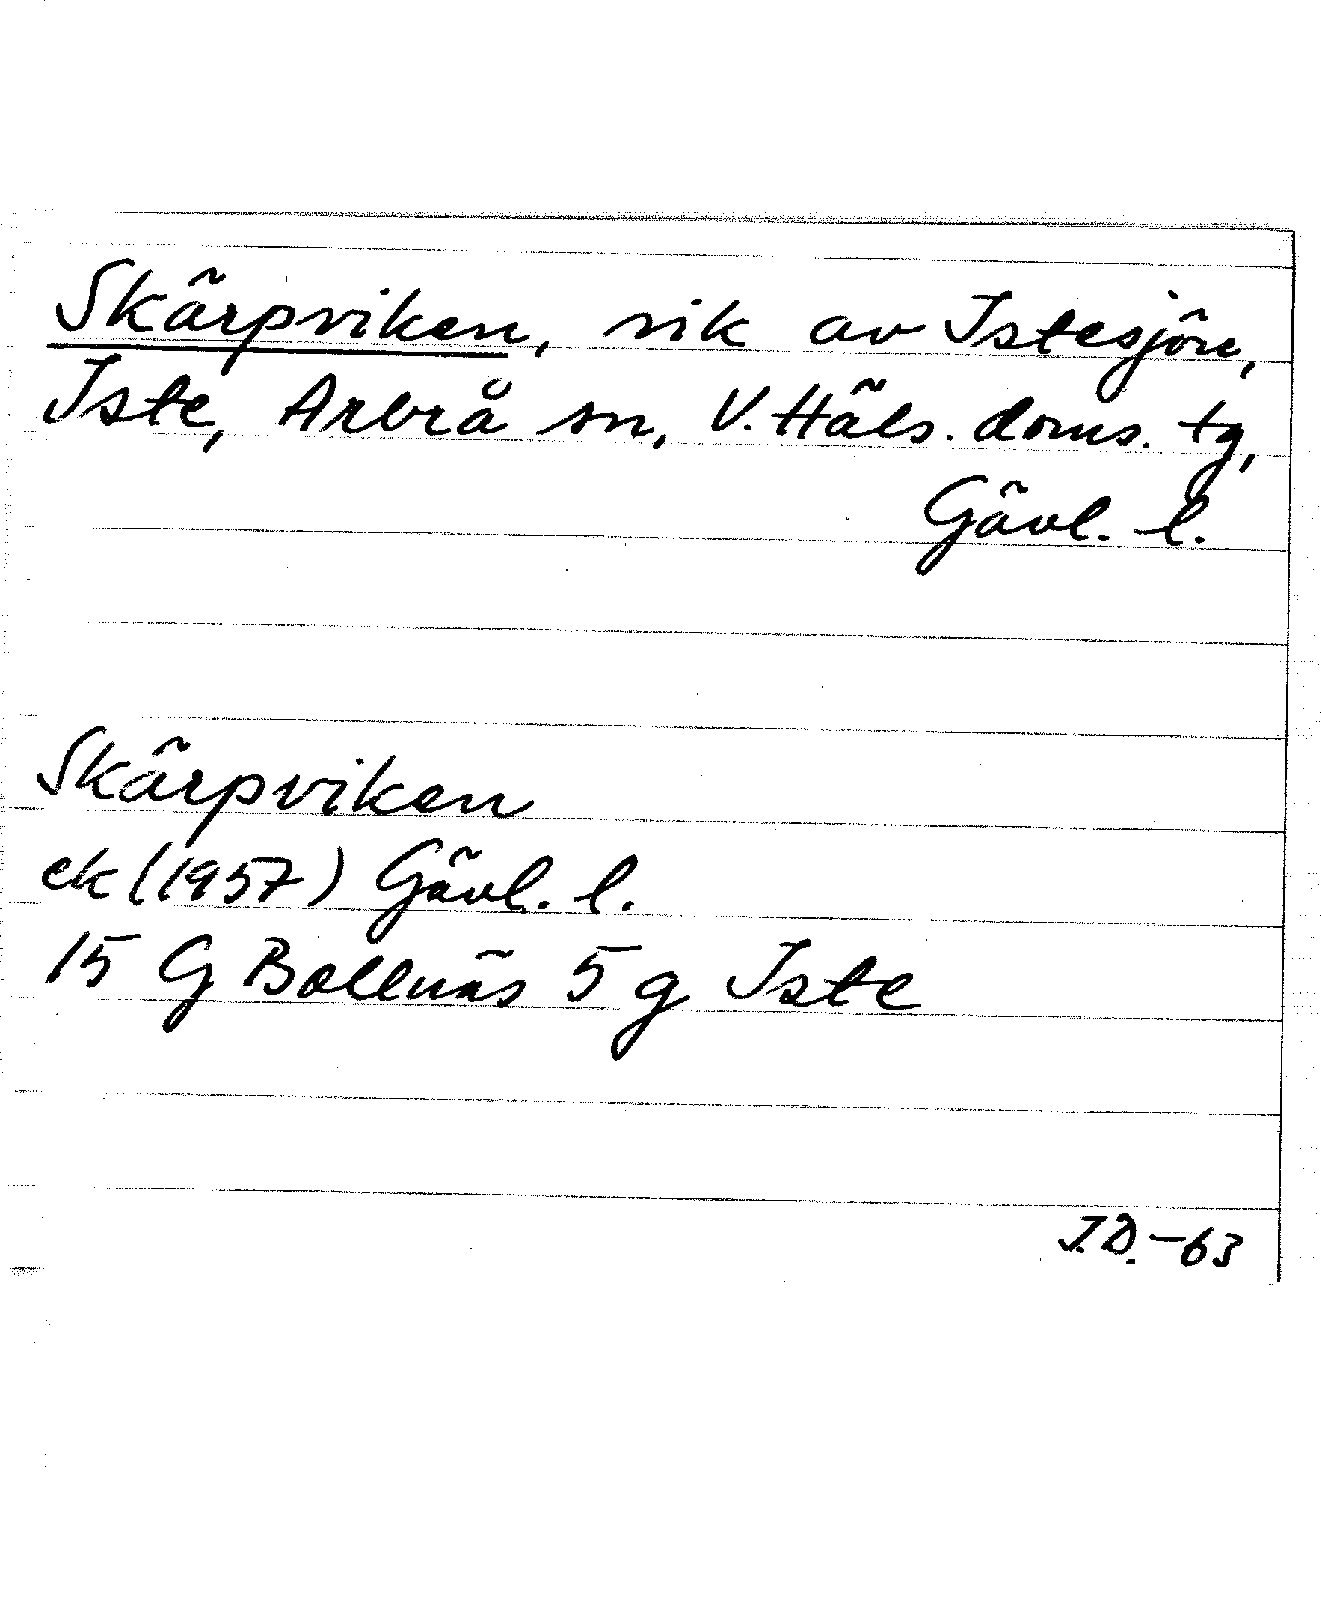 Skärpviken, vik av Istesjön,
Iste, Arbrå sn, V. Häls. doms. tg,
Gävl. l.
Skärpviken
ek (1957) Gävl. l.
15 G Bollnäs 5 g Iste
J.D.-63